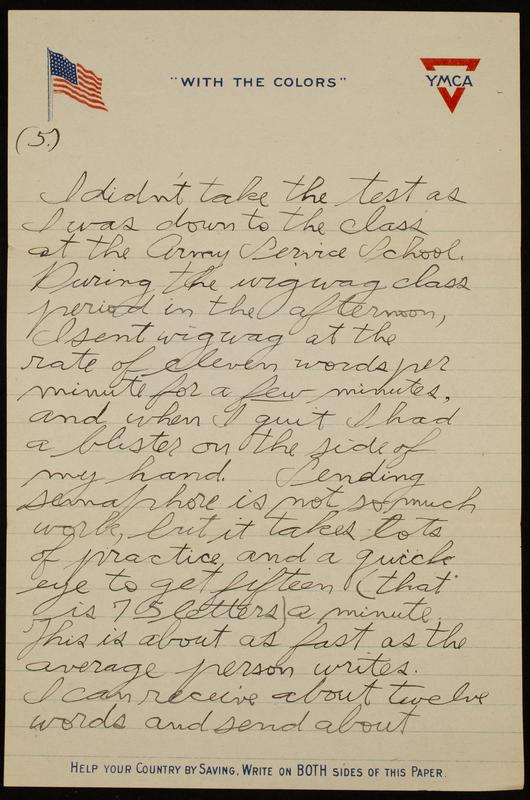 "WITH THE COLORS"
YMCA
(5.)
I didn't take the test as
I was down to the class
at the Army Service School.
During the wigwag class
period in the afternoon,
I sent wigwag at the
rate of eleven words per
minute for a few minutes,
and when I quit I had
a blister on the side of
my hand. Sending
semaphore is not so much
work, but it takes lots
of practice and a quick
eye to get fifteen (that
is 75 letters) a minute.
This is about as fast as the
average person writes.
I can receive about twelve
words and send about
HELP YOUR COUNTRY BY SAVING. WRITE ON BOTH SIDES OF THIS PAPER.